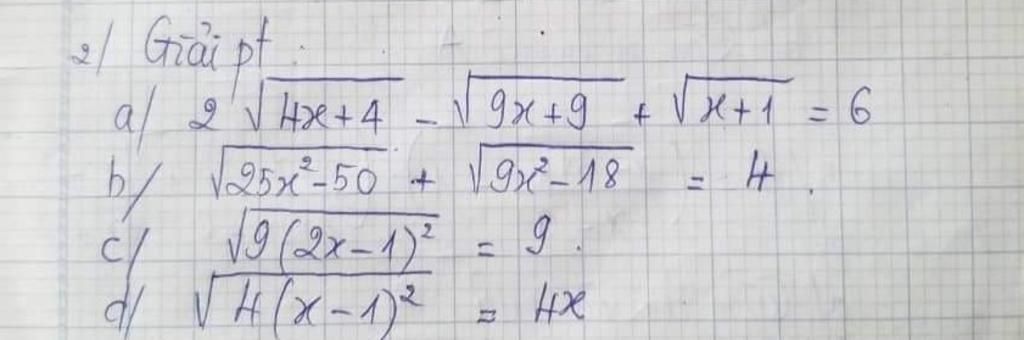 2/ Giải pt.
a/ 2√(4x+4) - √(9x+9) + √(x+1) = 6
b/ √(25x²-50) + √(9x²-18) = 4.
c/ √(9(2x-1)²) = 9.
d/ √(4(x-1)²) = 4x